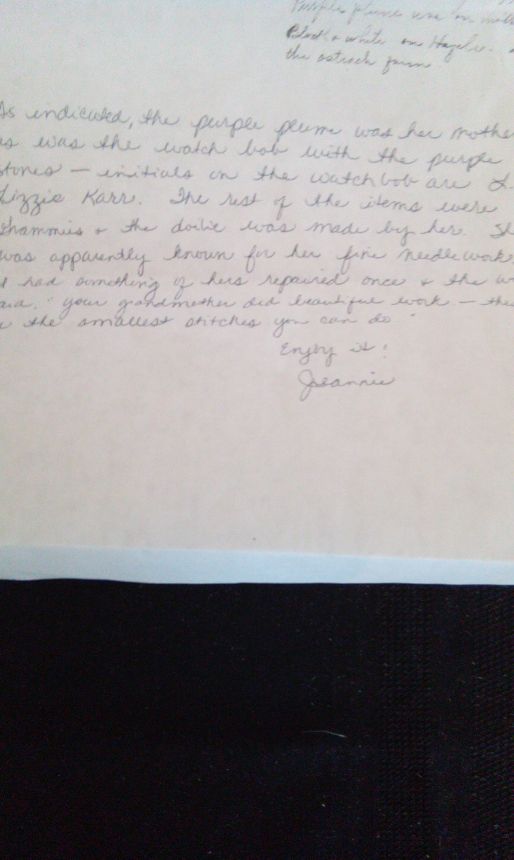 Purple plume was on
Black & white on
the ostrich farm.
As indicated, the purple plume was her mothe
as was the watch bob with the purple
stones — initials on the watchbob are L.
Lizzie Karr. The rest of the items were
Ghammie's & the doilie was made by her. Sh
was apparently known for her fine needlework
I had something of hers repaired once & the w
said, "your grandmother did beautiful work — the
the smallest stitches you can do"
Enjoy it!
Jeannie